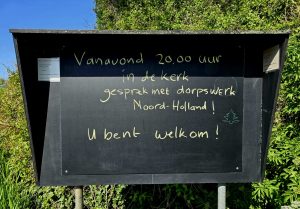 Vanavond 20,00 uur
in de kerk
gesprak met dorpswerk
Noord-Holland!
U bent welkom!